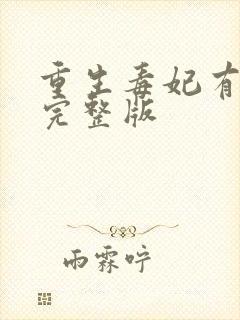 重生毒妃有
完整版
雨霖咛